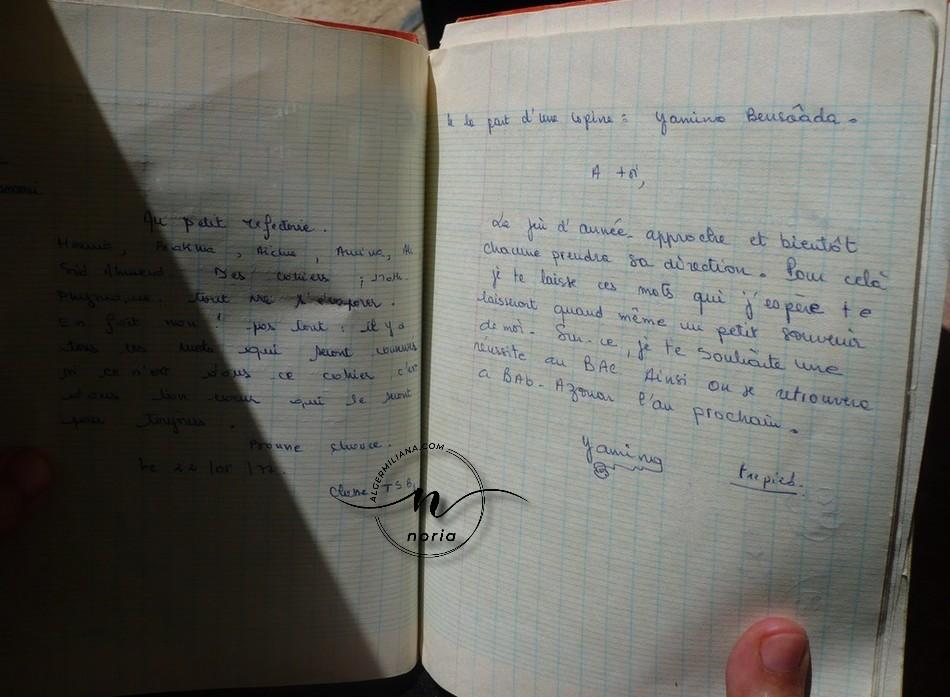 Au petit refectoire.
Houria, , Aicha, Amina,
Saïd Ahmed. Des cahiers ;
tout va s'évaporer.
En fait non! pas tout : il y a
tous ces mots qui seront
si ce n'est dans ce cahier c'est
dans ton coeur qui le sont
pour toujours.
Bonne chance.
Le 22/05/72.
Classe TSB
de la part d'une copine : Yamina Bensâada.
A toi,
La fin d'année approche et bientôt
chacune prendra sa direction. Pour celà
je te laisse ces mots qui j'espère te
laisseront quand même un petit souvenir
de moi. Sur-ce, je te souhaite une
réussite au BAC Ainsi on se retrouvera
a BAb-Azouar l'an prochain.
Yamina
trepied.
ALGERMILIANA.COM
n
noria